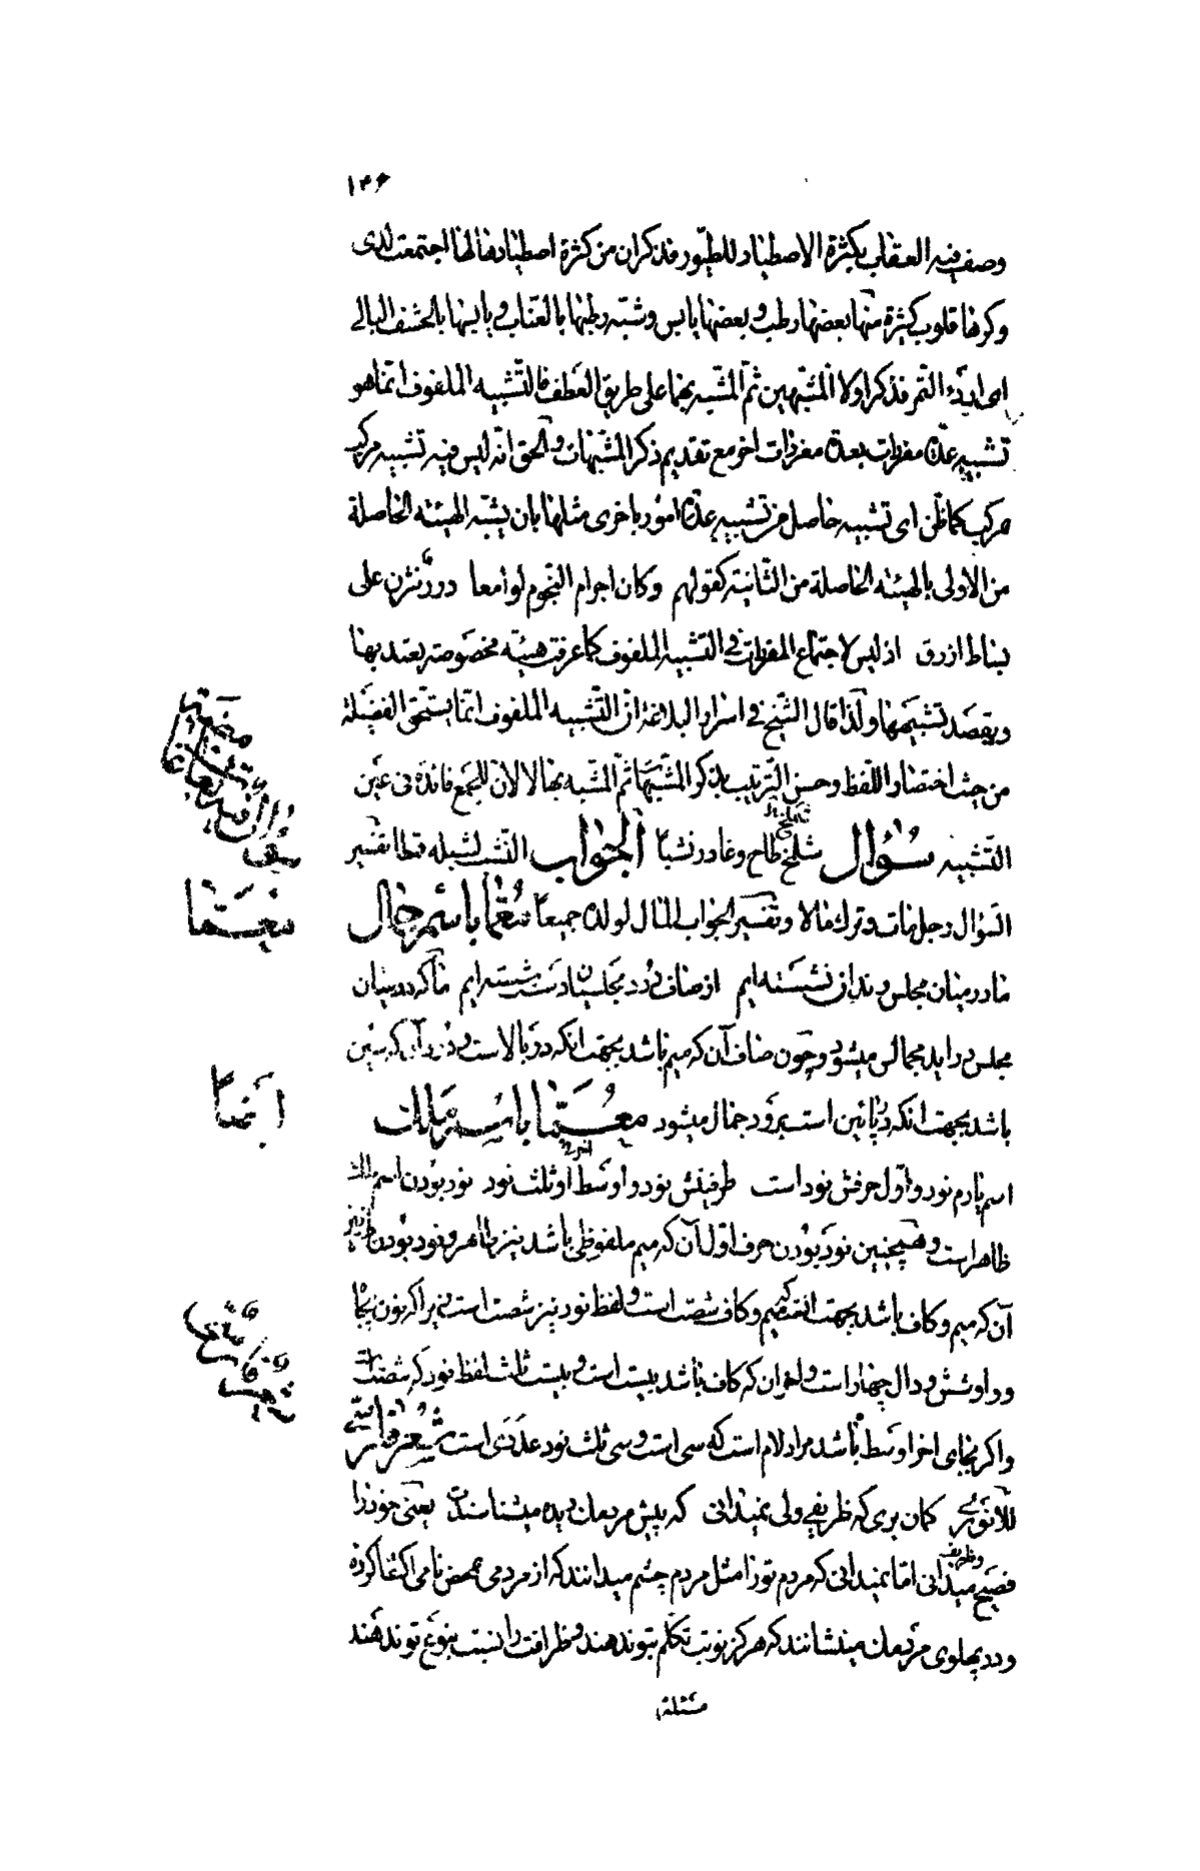 ۱۴۶
وصف فيه العقاب بكثرة الاصطياد للطيور فذكر ان من كثرة اصطيادها لها اجتمعت لدى
وكرها قلوب كثيرة منها بعضها رطب و بعضها يابس و شبّه رطبها بالعناب و يابسها بالحشف البالى
اى اردَء التمر فذكر اولا المشبهين ثم المشبه بهما على طريق العطف فالتشبيه الملفوف انما هو
تشبيه عدة مفردات بعدة مفردات اخر مع تقديم ذكر المشبهات و الحق انه ليس فيه تشبيه مركب
مركب كما ظن اى تشبيه حاصل من تشبيه عدة امور باخرى مثلها بان يشبّه الهيئة الحاصلة
من الاولى بالهيئة الحاصلة من الثانية كقولهم وكان اجرام النجوم لوامعا درر نثرن على
بساط ازرق اذ ليس لاجتماع المفردات فى التشبيه الملفوف كما عرفت هيئة مخصوصة يعتد بها
ويقصد تشبيهها و لذا قال الشيخ فى اسرار البلاغة ان التشبيه الملفوف انما يستحق الفضيلة
من حيث اختصار اللفظ و حسن الترتيب بذكر المشبهات ثم المشبه بها لا لان للجمع فائدة فى عين
التشبيه سؤال شلخ طاح وغادر نشبا الجواب النشب لشبله قطا تفسير
السؤال رجل مات و ترك مالا و تفسير الجواب المال لولده جميعا معمّا باسم جمال
ما در ميان مجلس رندان نشسته ايم از صاف دُرد مجلسيان دست شسته ايم ما كه در ميان
مجلس درايد مجمالس ميشود و چون صاف آن كه ميم باشد بجهت انكه در بالاست و درد آن كه سين
باشد بجهت انكه در پائين است برود جمال ميشود معمّا باسم ملك
اسم يارم نود و اوّل حرفش نود است طرفينش نود و اوسط او ثلث نود نود بودن اسم
ظاهر است و همچنين نود بودن حرف اوّل آن كه ميم ملفوظى باشد نيز ظاهر و نود بودن طرفين
آن كه ميم و كاف باشد بجهت انست كه ميم و كاف شصت است و لفظ نود نيز شصت است زيرا كه نون پنجاه
و واو شش و دال چهار است و اخر ان كه كاف باشد بيست است و بيست ثلث لفظ نود كه شصت است
و اكر بجاى اخر اوسط باشد مراد لام است كه سى است و سى ثلث نود عددى است شعر فارسى
للانورى كمان برى كه ظريفى ولى نميدانى كه پيش مردمان ديده ميشناسندت يعنى خود را
فصيح و ظريف ميدانى اما نميدانى كه مردم تو را مثل مردم چشم ميدانند كه از مردمى بمحض نامى اكتفا كرده
و در پهلوى مردمان مينشانند كه هركز نوبت تكلم بتو ندهند و ظرافت را نسبت بنوع تو ندهند
معمّا
ايضا